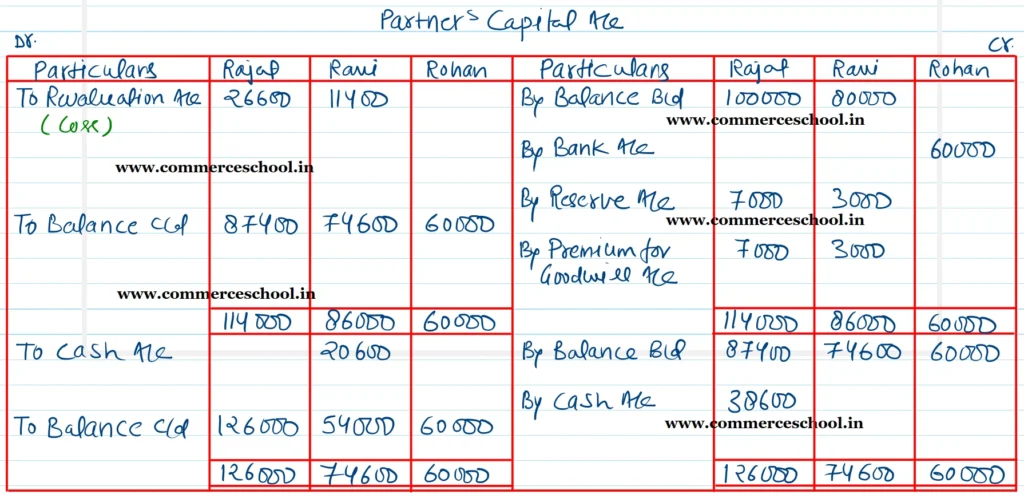 Partner's Capital A/c
Dr. Cr.
Particulars Rajat Ravi Rohan Particulars Rajat Ravi Rohan
To Revaluation A/c 26600 11400 By Balance B/d 100000 80000
(Loss) www.commerceschool.in
www.commerceschool.in By Bank A/c 60000
By Reserve A/c 7000 3000
To Balance C/d 87400 74600 60000 www.commerceschool.in
By Premium for 7000 3000
Goodwill A/c
www.commerceschool.in
114000 86000 60000 114000 86000 60000
To Cash A/c 20600 By Balance B/d 87400 74600 60000
By Cash A/c 38600
To Balance C/d 126000 54000 60000 www.commerceschool.in
126000 74600 60000 126000 74600 60000